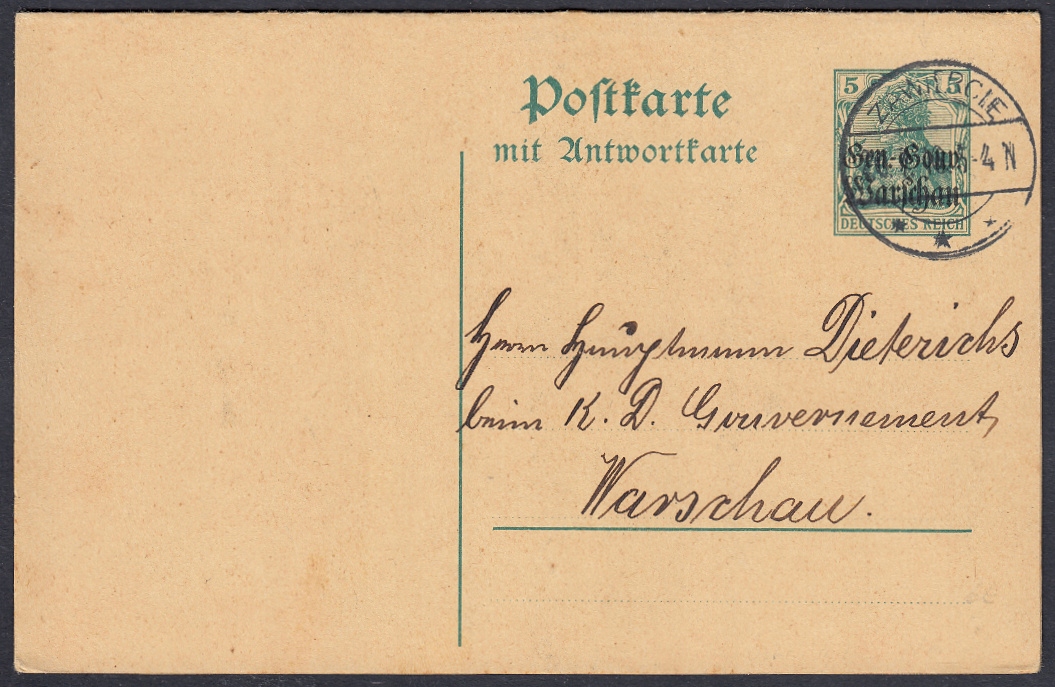 Postkarte
mit Antwortkarte
5 5
ZAWIERCIE
Gen.-Gouv.
-4 N
Warschau
DEUTSCHES REICH
Herrn Hauptmann Dieterichs
beim K. D. Gouvernement,
Warschau.